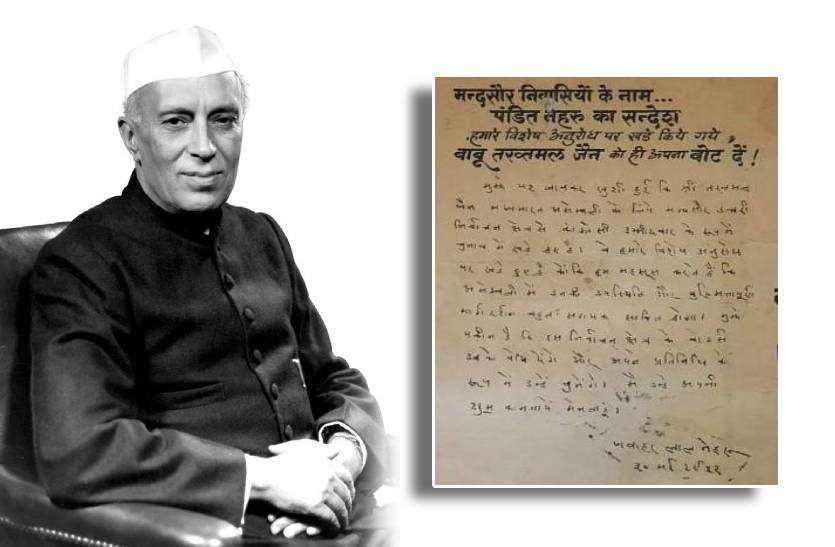 मन्दसौर निवासियों के नाम...
पंडित नेहरु का सन्देश
हमारे विशेष अनुरोध पर खडे किये गये,
बाबू तख्तमल जैन को ही अपना वोट दें!
मुझे यह जानकर खुशी हुई कि श्री तख्तमल
जैन मध्यभारत असेम्बली के लिये मन्दसौर उत्तरी
निर्वाचन क्षेत्र से कांग्रेसी उम्मीदवार के रूप में
चुनाव में खडे हुए है। वे हमारे विशेष अनुरोध
पर खडे हुए है क्योंकि हम महसूस करते है कि
असेम्बली में उनकी उपस्थिति और बुद्धिमत्तापूर्ण
मार्गदर्शन बहुत सहायक साबित होगा। मुझे
यकीन है कि इस निर्वाचन क्षेत्र के वोटर्स
उनको वोट देंगे और अपने प्रतिनिधि के
रूप में उन्हें चुनेंगे। मै उन्हे अपनी
शुभ कामनाये भेजता हूं।
जवाहर लाल नेहरू
२० मई